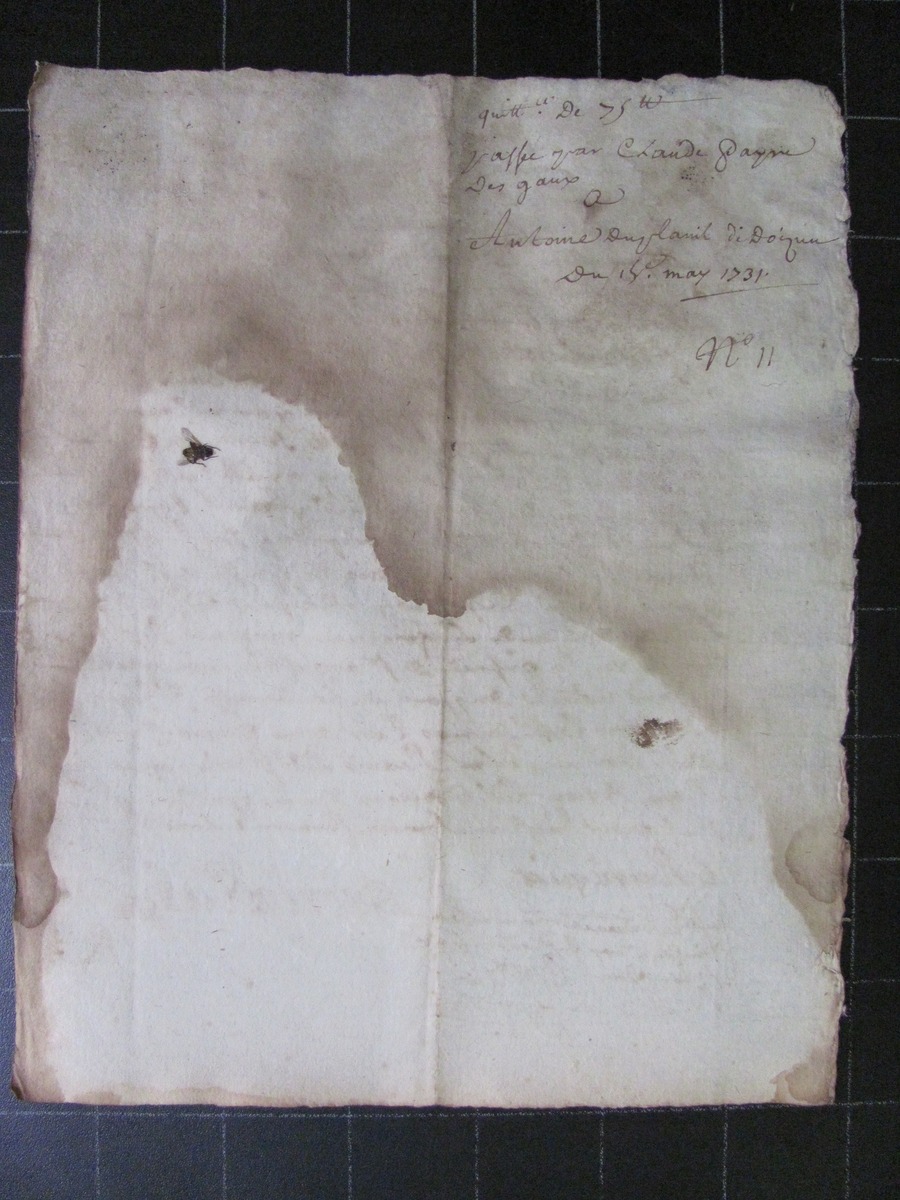 quitt.ce De 75 tt
passe par Claude Payre
Des gaux
A
Antoine Duplanil
Du 15e. may 1731.
No 11